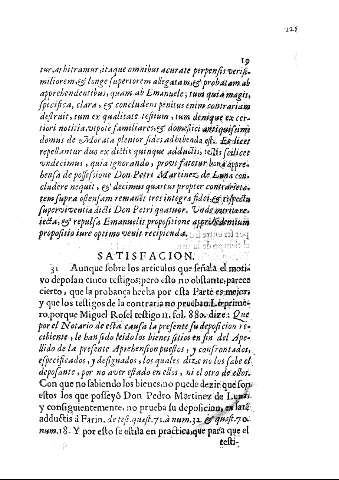 19
tur, arbitramur, itaque omnibus acurate perpensis verisi-
miliorem, & longe superiorem allegatam, & probatam ab
apprehendentibus, quam ab Emanuele; tum quia magis,
specifica, clara, & concludens penitus enim contrariam
destruit, tum ex qualitate testium, tum denique ex cer-
tiori notitia, utpote familiares, & domestici antiquissimi
domus de adorata plenior fides adhibenda est. Et licet
repellantur duo ex dictis quinque adductis, testis scilicet
undecimus, quia ignorando, prout fatetur bona appre-
hensa de possessione Don Petri Martinez de Luna con-
cludere nequit, & decimus quartus propter contrarieta-
tem supra ostensam remanet tres integra fidei & respectu
superviventia dicti Don Petri quatuor. Unde
tecta, & repulsa Emanuelis propositione apprehendentium
propositio iure optimo venit recipienda.
SATISFACION.
31 Aunque sobre los articulos que señala el moti-
vo depolan cinco testigos; pero esto no obstante, parece
cierto, que la probança hecha por esta Parte es mejor,
y que los testigos de la contraria no prueban. Lo prime-
ro, porque Miguel Rosel testigo 11. fol. 880. dize: Que
por el Notario de esta causa la presente su deposicion re-
cibiente, le han sido leidos los bienes sitios en fin del Ape-
llido de la presente Aprehension puestos, y confrontados,
especificados, y designados, los quales dize no los sabe el
deposante, por no aver estado en ellos, ni el otro de ellos.
Con que no sabiendo los bienes, no puede dezir que son
estos los que posseyò Don Pedro Martinez de Luna,
y consiguientemente, no prueba su deposicion, ex late
adductis à Farin. de test. quæst. 71. à num. 32. & quæst. 70.
num. 18. Y por esto se estila en practica, que para que el
testi-